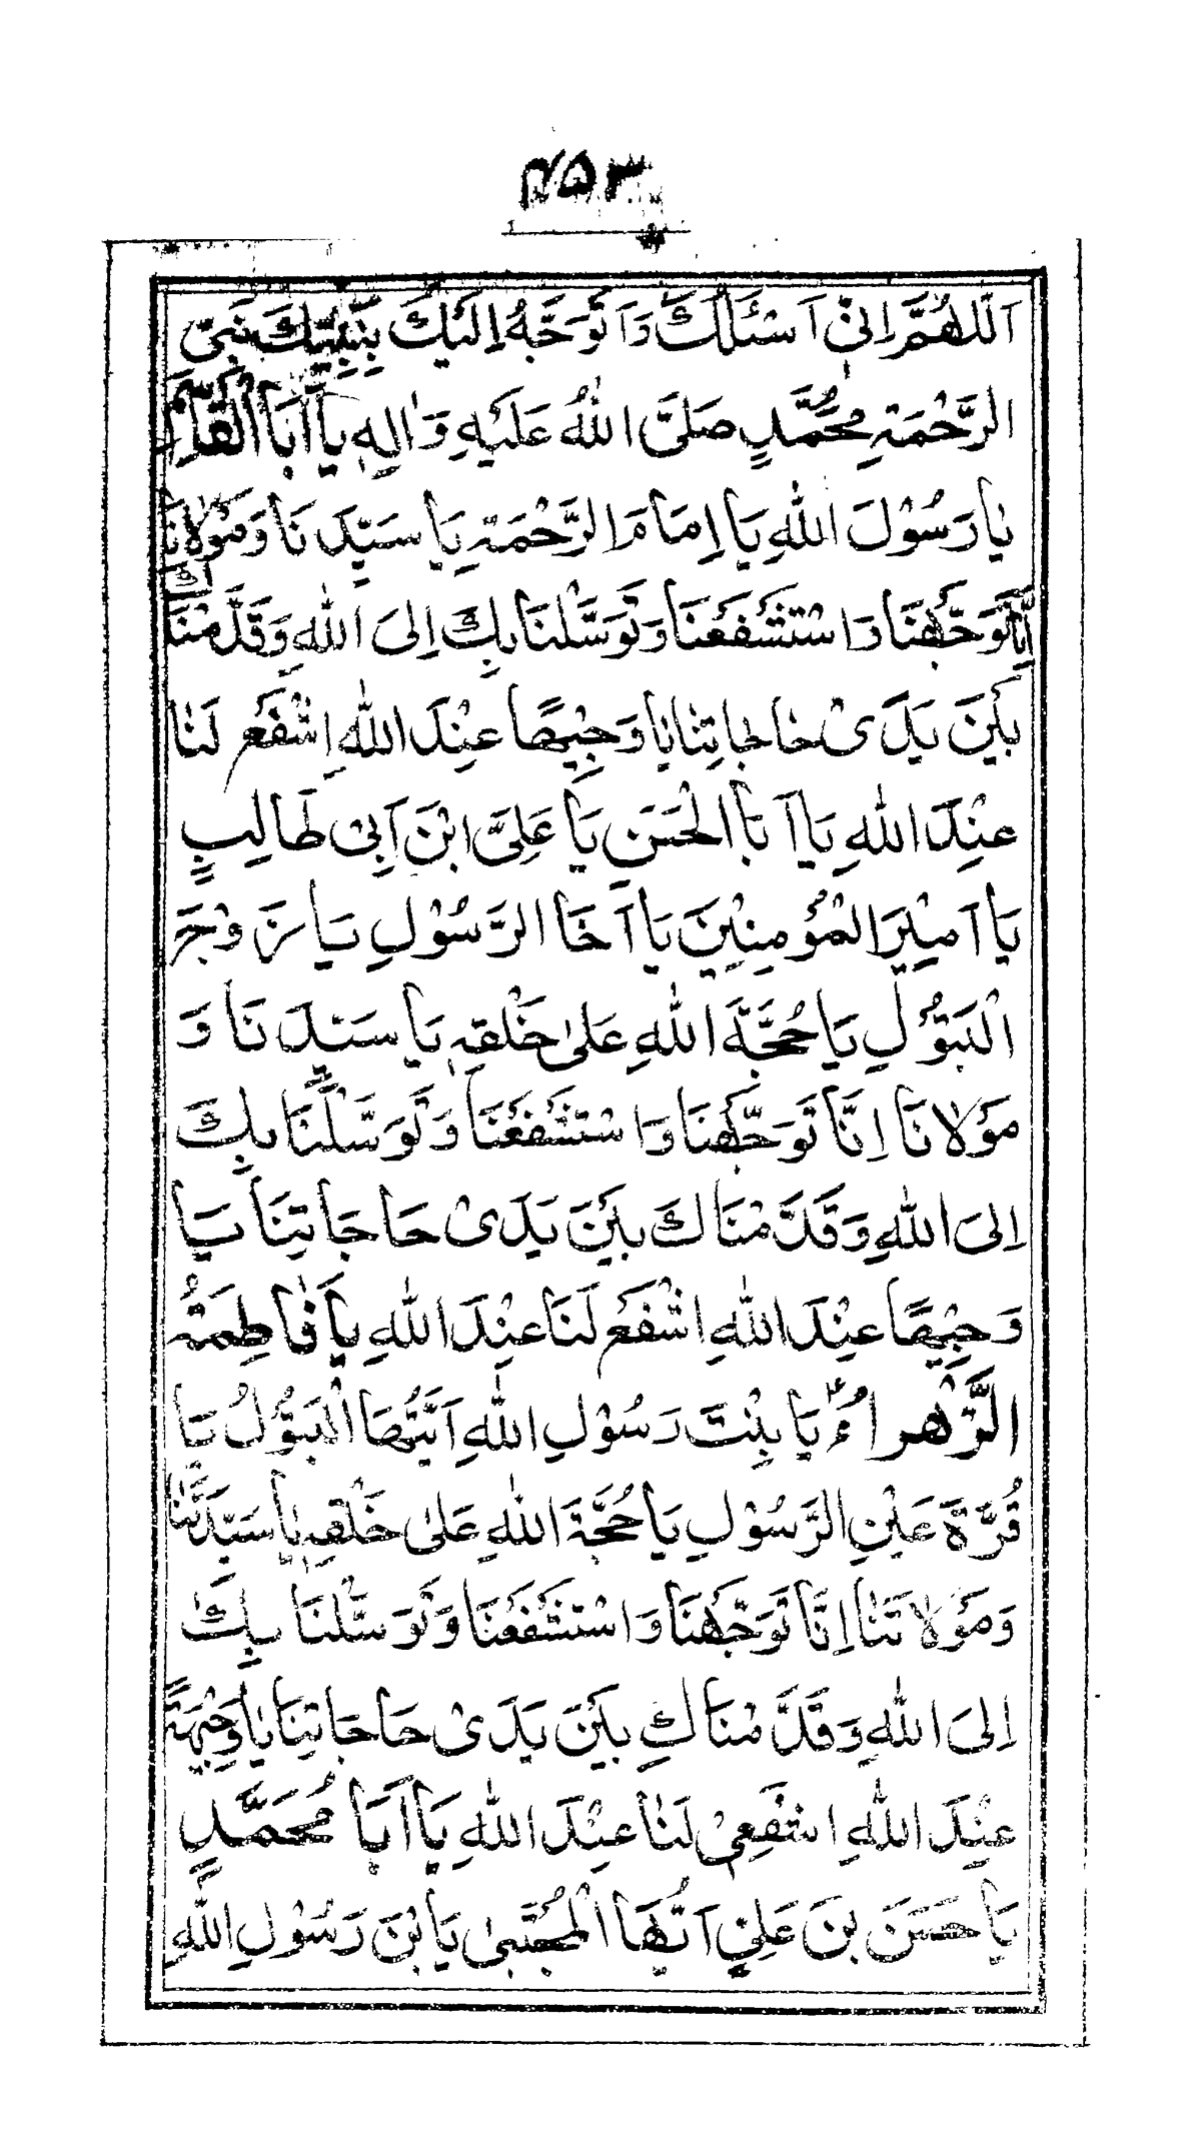 ۲۵۳
اَللّٰهُمَّ اِنِّیْ اَسْئَلُكَ وَاَتَوَجَّهُ اِلَيْكَ بِنَبِيِّكَ نَبِيِّ
الرَّحْمَةِ مُحَمَّدٍ صَلَّى اللّٰهُ عَلَيْهِ وَاٰلِهٖ يَا اَبَا الْقَاسِمِ
يٰا رَسُوْلَ اللّٰهِ يَا اِمَامَ الرَّحْمَةِ يَا سَيِّدَنَا وَمَوْلَانَا
اِنَّا تَوَجَّهْنَا وَاسْتَشْفَعْنَا وَتَوَسَّلْنَا بِكَ اِلَى اللّٰهِ وَقَدَّمْنَاكَ
بَيْنَ يَدَىْ حٰاجٰاتِنٰا يٰا وَجِيْهًا عِنْدَ اللّٰهِ اِشْفَعْ لَنٰا
عِنْدَ اللّٰهِ يَا اَبَا الْحَسَنِ يَا عَلِىَّ ابْنَ اَبِىْ طَالِبٍ
يَا اَمِيْرَ الْمُؤْمِنِيْنَ يَا اَخَا الرَّسُوْلِ يَا زَوْجَ
الْبَتُوْلِ يَا حُجَّةَ اللّٰهِ عَلٰى خَلْقِهٖ يَا سَيِّدَنَا وَ
مَوْلَانَا اِنَّا تَوَجَّهْنَا وَاسْتَشْفَعْنَا وَتَوَسَّلْنَا بِكَ
اِلَى اللّٰهِ وَقَدَّمْنَاكَ بَيْنَ يَدَىْ حَاجَاتِنَا يَا
وَجِيْهًا عِنْدَ اللّٰهِ اشْفَعْ لَنَا عِنْدَ اللّٰهِ يَا فَاطِمَةُ
الزَّهْرَاءُ يَا بِنْتَ رَسُوْلِ اللّٰهِ اَيَّتُهَا الْبَتُوْلُ يَا
قُرَّةَ عَيْنِ الرَّسُوْلِ يَا حُجَّةَ اللّٰهِ عَلٰى خَلْقِهٖ يٰا سَيِّدَتَنٰا
وَمَوْلَاتَنٰا اِنَّا تَوَجَّهْنَا وَاسْتَشْفَعْنَا وَتَوَسَّلْنَا بِكِ
اِلَى اللّٰهِ وَقَدَّمْنَاكِ بَيْنَ يَدَىْ حَاجَاتِنَا يٰا وَجِيْهَةً
عِنْدَ اللّٰهِ اشْفَعِىْ لَنٰا عِنْدَ اللّٰهِ يَا اَبَا مُحَمَّدٍ
يَا حَسَنَ بنَ عَلِيٍّ اَيُّهَا الْمُجْتَبٰى يَا بْنَ رَسُوْلِ اللّٰهِ